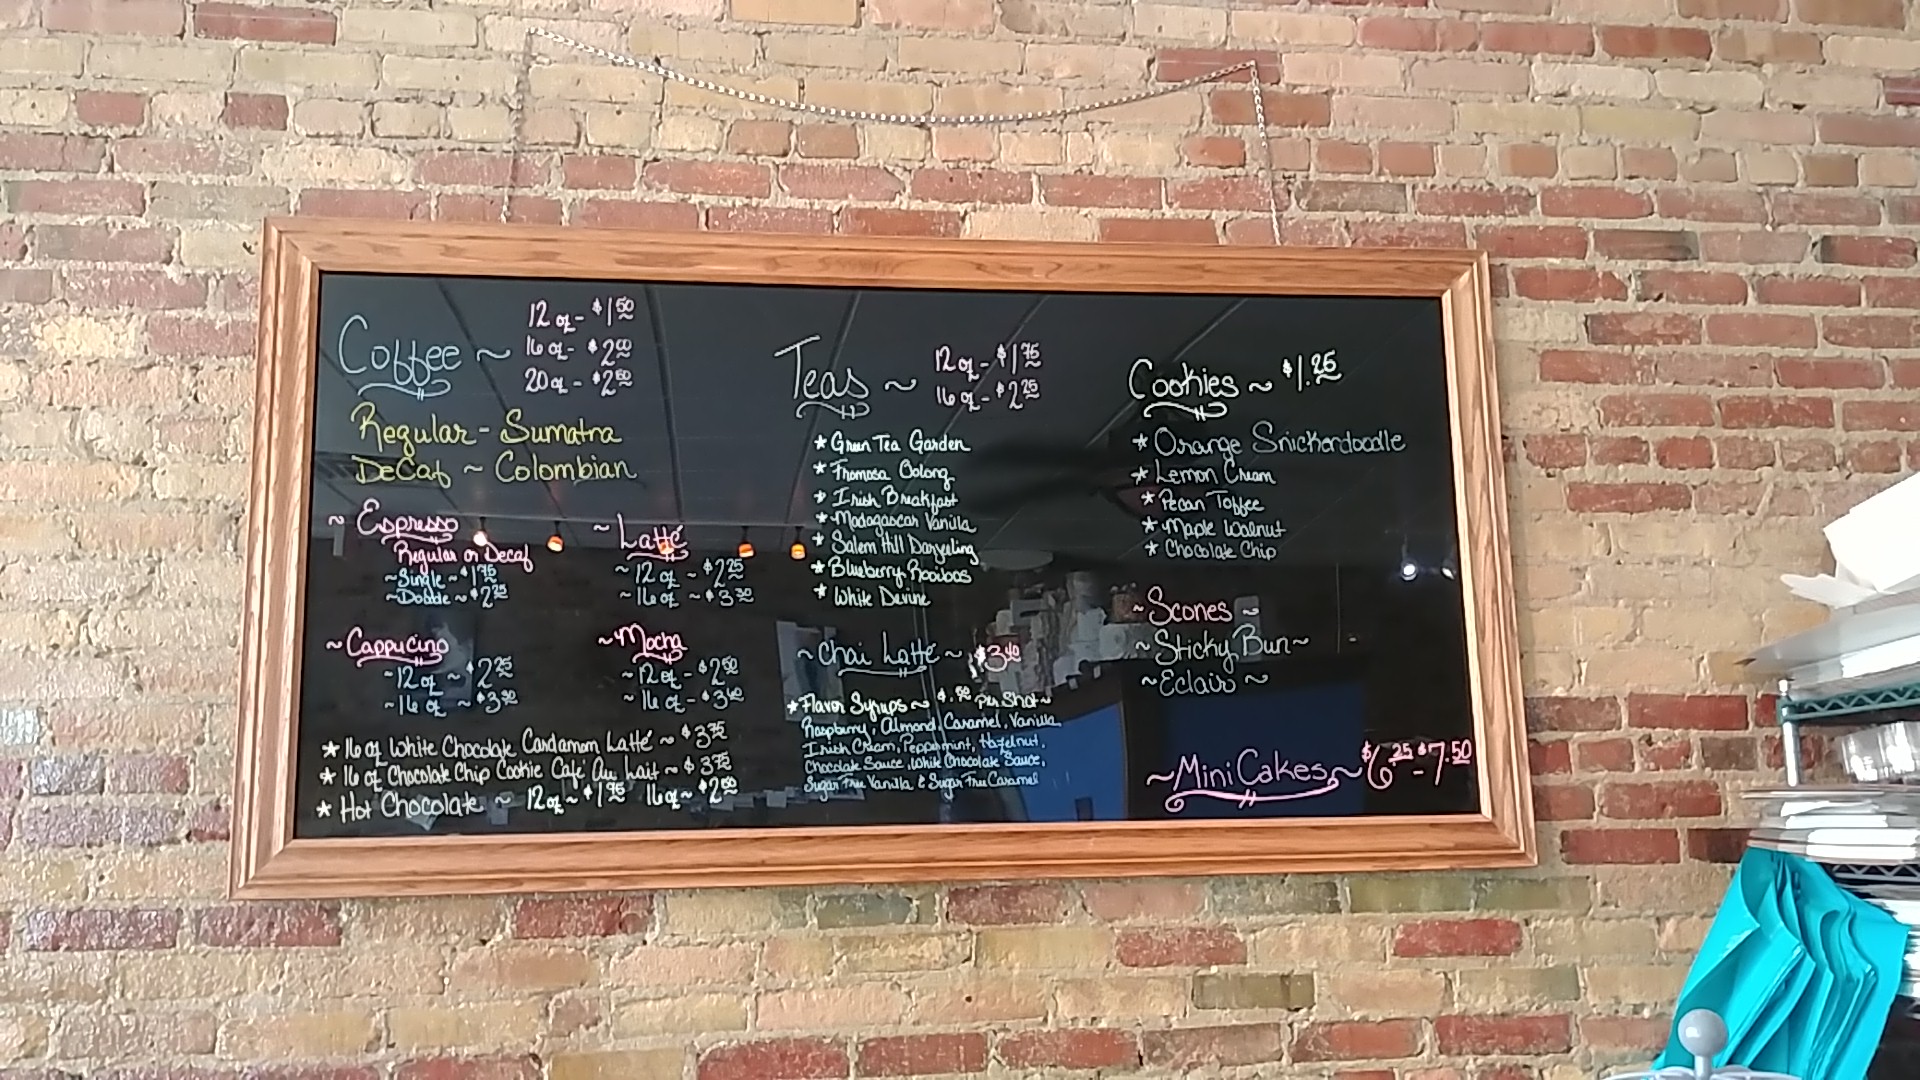 Coffee ~
12 oz - $1.50
16 oz - $2.00
20 oz - $2.50
Regular - Sumatra
DeCaf ~ Colombian
~ Espresso
Regular or Decaf
~ Single ~ $1.75
~ Double ~ $2.25
~ Latté
~ 12 oz ~ $2.25
~ 16 oz ~ $3.30
~ Cappucino
~ 12 oz ~ $2.25
~ 16 oz ~ $3.30
~ Mocha
~ 12 oz - $2.50
~ 16 oz - $3.40
* 16 oz White Chocolate Cardamom Latté ~ $3.75
* 16 oz Chocolate Chip Cookie Café Au Lait ~ $3.75
* Hot Chocolate ~ 12 oz ~ $1.95 16 oz ~ $2.50
Teas ~
12 oz - $1.75
16 oz - $2.25
* Green Tea Garden
* Fromosa Oolong
* Irish Breakfast
* Madagascar Vanilla
* Salem Hill Darjeeling
* Blueberry Rooibos
* White Devine
~ Chai Latté ~ $3.40
* Flavor Syrups ~ $.50 Per Shot ~
Raspberry, Almond, Caramel, Vanilla
Irish Cream, Peppermint, Hazelnut,
Chocolate Sauce, White Chocolate Sauce,
Sugar Free Vanilla & Sugar Free Caramel
Cookies ~ $1.25
* Orange Snickerdoodle
* Lemon Cream
* Pecan Toffee
* Maple Walnut
* Chocolate Chip
~ Scones ~
~ Sticky Bun ~
~ Eclair ~
~ Mini Cakes ~ $6.25 - $7.50